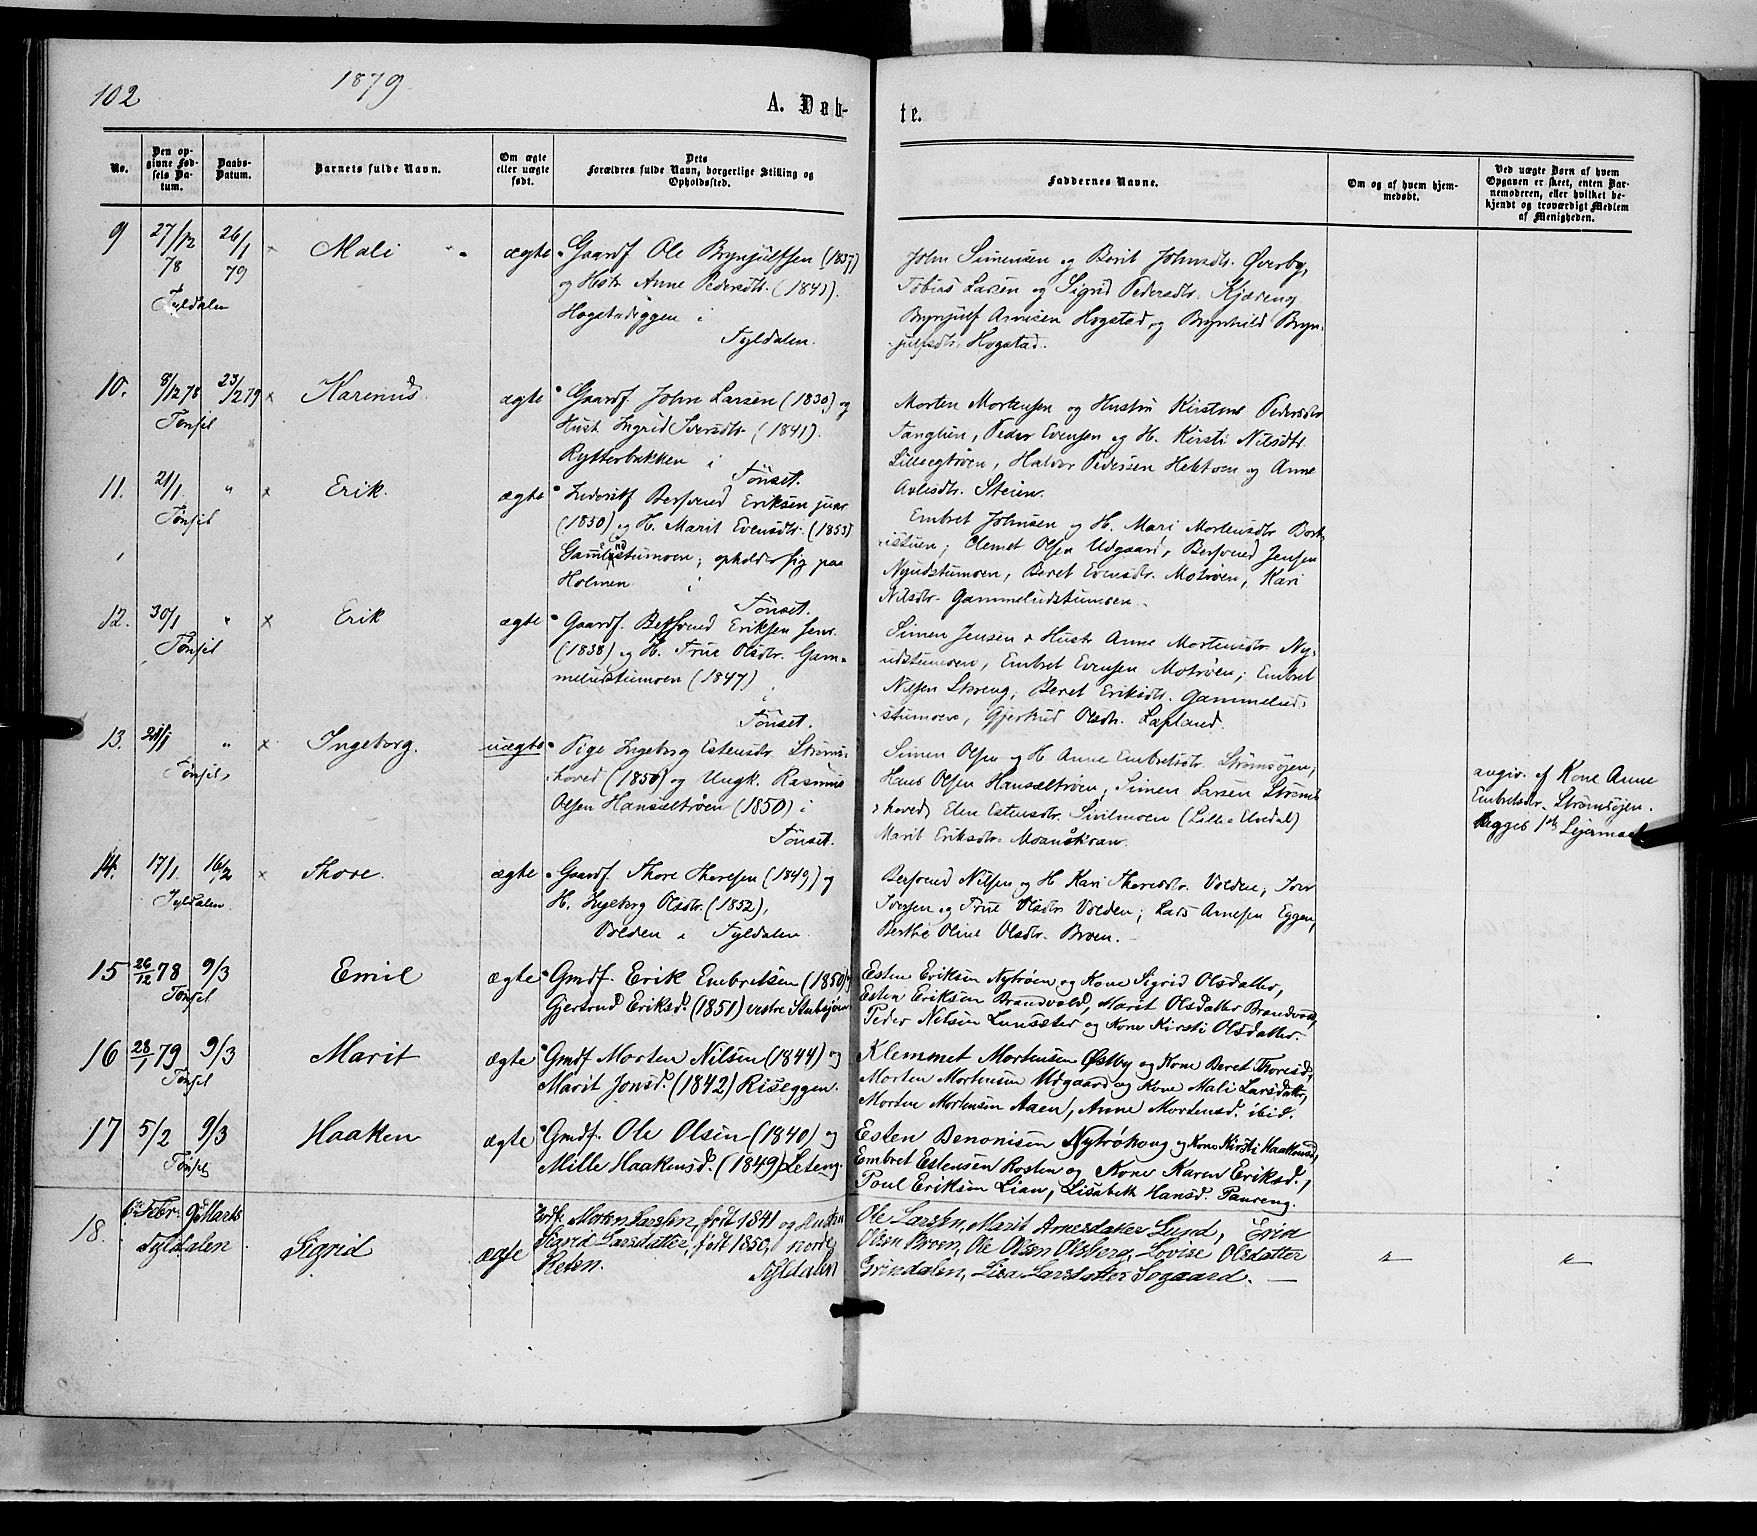 102
1879
A. Døb-
te.
No.
Den op-
givne Fød-
sels Da-
tum.
Daabs-
Datum.
Barnets fulde Navn.
Om ægte
eller uægte
født.
Dets
Forældres fulde Navn, borgerlige Stilling og
Opholdssted.
Faddernes Navne.
Om og af hvem hjem-
medøbt.
Ved uægte Børn af hvem
Opgaven er skeet, enten Bar-
nemoderen, eller hvilket be-
kjendt og troværdigt Medlem
af Menigheden.
9
27/12
78
Tyldalen
26/1
79
×
Mali
ægte
Gaardf Ole Brynjulfsen (1837)
og Hstr Anne Pedersdtr. (1841).
Hogstadeggen i
Tyldalen.
John Simensen og Berit Johnsdtr. Øverby,
Tobias Larsen og Sigrid Pedersdtr. Kjæreng
Brynjulf Arnesen Hogstad, og Brynhild Bryn-
julfsdtr. Hogstad.
10.
8/12 78
Tønset
23/2 79
×
Karenus
ægte
Gaardf. John Larsen (1830) og
Hust. Ingrid Iversdtr. (1841).
Rytterbakken i
Tønset.
Morten Mortensen og Hustru Kirstine Pedersdtr
Tanglien, Peder Evensen og H. Kirsti Nilsdtr.
Lillesegtrøen, Haldor Pedersen Hektoen og Anne
Steien.
11.
21/1
Tønset
"
×
Erik.
ægte
Bersvend Eriksen junr
(1850) og H. Marit Evensdtr. (1853)
Gamelundstumoen; opholder sig paa
Holmen i
Tønset.
Embret Johnsen og H. Mari Mortensdtr Bort-
istuen; Clemet Olsen Udgaard, Bersvend Jensen
Nyudstumoen, Beret Evensdtr. Motrøen, Kari
Nilsdtr. Gammeludstumoen.
12.
30/1
Tønset
"
×
Erik
ægte
Gaardf. Bersvend Eriksen senr.
(1838) og H. Frue Olsdtr. Gam-
meludstumoen (1847)
i
Tønset.
Simen Jensen & Hustr Anne Mortensdtr Ny-
udstumoen, Embret Evensen Motrøen; Embret
Nilsen Skreng; Beret Eriksdtr. Gammelud-
stumoen, Gjertrud Olsdtr. Lapland.
13.
21/1
Tønset
"
×
Ingeborg.
uægte
Pige Ingeborg Estensdtr. Strøms-
hoved (1856) og Ungk. Rasmus
Olsen Hansæltrøen (1850) i
Tønset.
Simen Olsen og H Anne Embretsdtr. Strømsøjen;
Hans Olsen Hansæltrøen, Simen Larsen Strøms-
hoved, Elen Estensdtr. Sivilmoen (Lille Elvedal)
Marit Eriksdtr. Moanskroen.
angiv. af Kone Anne
Embretsdtr. Strømsøjen.
Begges 1ste Lejermaal
14.
17/1.
Tyldalen.
16/2
×
Thore.
ægte
Gaardf. Thore Thoresen (1849) og
H. Ingeborg Olsdtr. (1852),
Volden i Tyldalen
Bersvend Nilsen og H. Kari Thoresdtr. Volden; Iver
Iversen og Frue Olsdtr Volden; Lars Arnesen Eggen,
Berthe Oline Olsdtr. Broen.
15
26/12 78
Tønset
9/3
Emil
ægte
Gmdf. Erik Embretsen (1850) og
Gjertrud Eriksd. (1851) vestre Stubsjøen
Esten Eriksen Nytrøen og Kone Sigrid Olsdatter,
Esten Eriksen Brandvold, Marit Olsdatter Brandvold,
Peder Nilsen Lunsæter og Kone Kirsti Olsdatter.
16
28/1 79
Tønset
9/3
Marit
ægte
Gmdf Morten Nilsen (1844) og
Marit Jonsd. (1842) Riseggen.
Klemmet Mortensen Østby og Kone Beret Thoresd,
Morten Mortensen Udgaard og Kone Mali Larsdatter,
Morten Mortensen Aaen, Anne Mortensd. ibid.
17
5/2
Tønset
9/3
Haakken
ægte
Gmdf. Ole Olsen (1840) og
Mille Haakensd. (1849) Leteng.
Esten Benonisen Nytrøhaug og Kone Kirsti Haakensd,
Embret Estensen Rosten og Kone Karen Eriksd.,
Poul Eriksen Lian, Lisabeth Hansd. Paureng.
18.
6te Febr.
9de Marts
Tyldalen
Sigrid
ægte
Morten Larsen, født 1841 og Hustru
Sigrid Larsdatter, født 1850, i nordre
Tyldalen
Ole Larsen, Marit Arnesdatter Lund,
Olsen Broen, Ole Olsen Olsberg, Lovise Olsdatter
Grindalen, Lisa Larsdatter Sogaard.
"
"